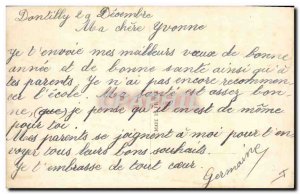 Dontilly le 29 Décembre
Ma chère Yvonne
Je t'envoie mes meilleurs vœux de bonne
année et de bonne santé ainsi qu'à
tes parents. Je n'ai pas encore recommen
cer l'école. Ma santé est assez bon
ne, que je pense qu'il en est de même
pour toi.
Mes parents se joignent à moi pour t'en
voyer tous leurs bons souhaits.
Je t'embrasse de tout cœur
Germaine